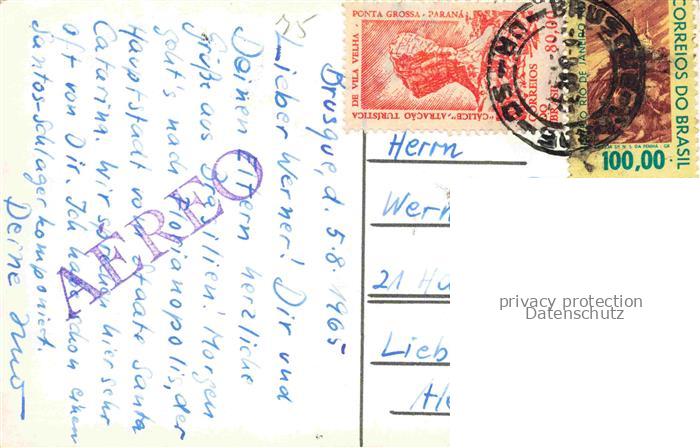 75
Brusque, d. 5.8.1965
Lieber Werner! Dir und
Deinen Eltern herzliche
Grüße aus Brasilien! Morgen
geht's nach Florianopolis, der
Hauptstadt vom Staate Santa
Catarina. Wir sprechen hier sehr
oft von Dir. Ich habe schon einen
Santos-Schlager komponiert.
Deine
AEREO
PONTA GROSSA - PARANÁ
DE VILA VELHA
"CALICE" ATRAÇÃO TURÍSTICA
CORREIOS
DO
BRASIL
80,00
CORREIOS DO BRASIL
RIO DE JANEIRO
100,00
BRUSQUE
Herrn
Wern
21 Ha
Lieb
privacy protection
Datenschutz